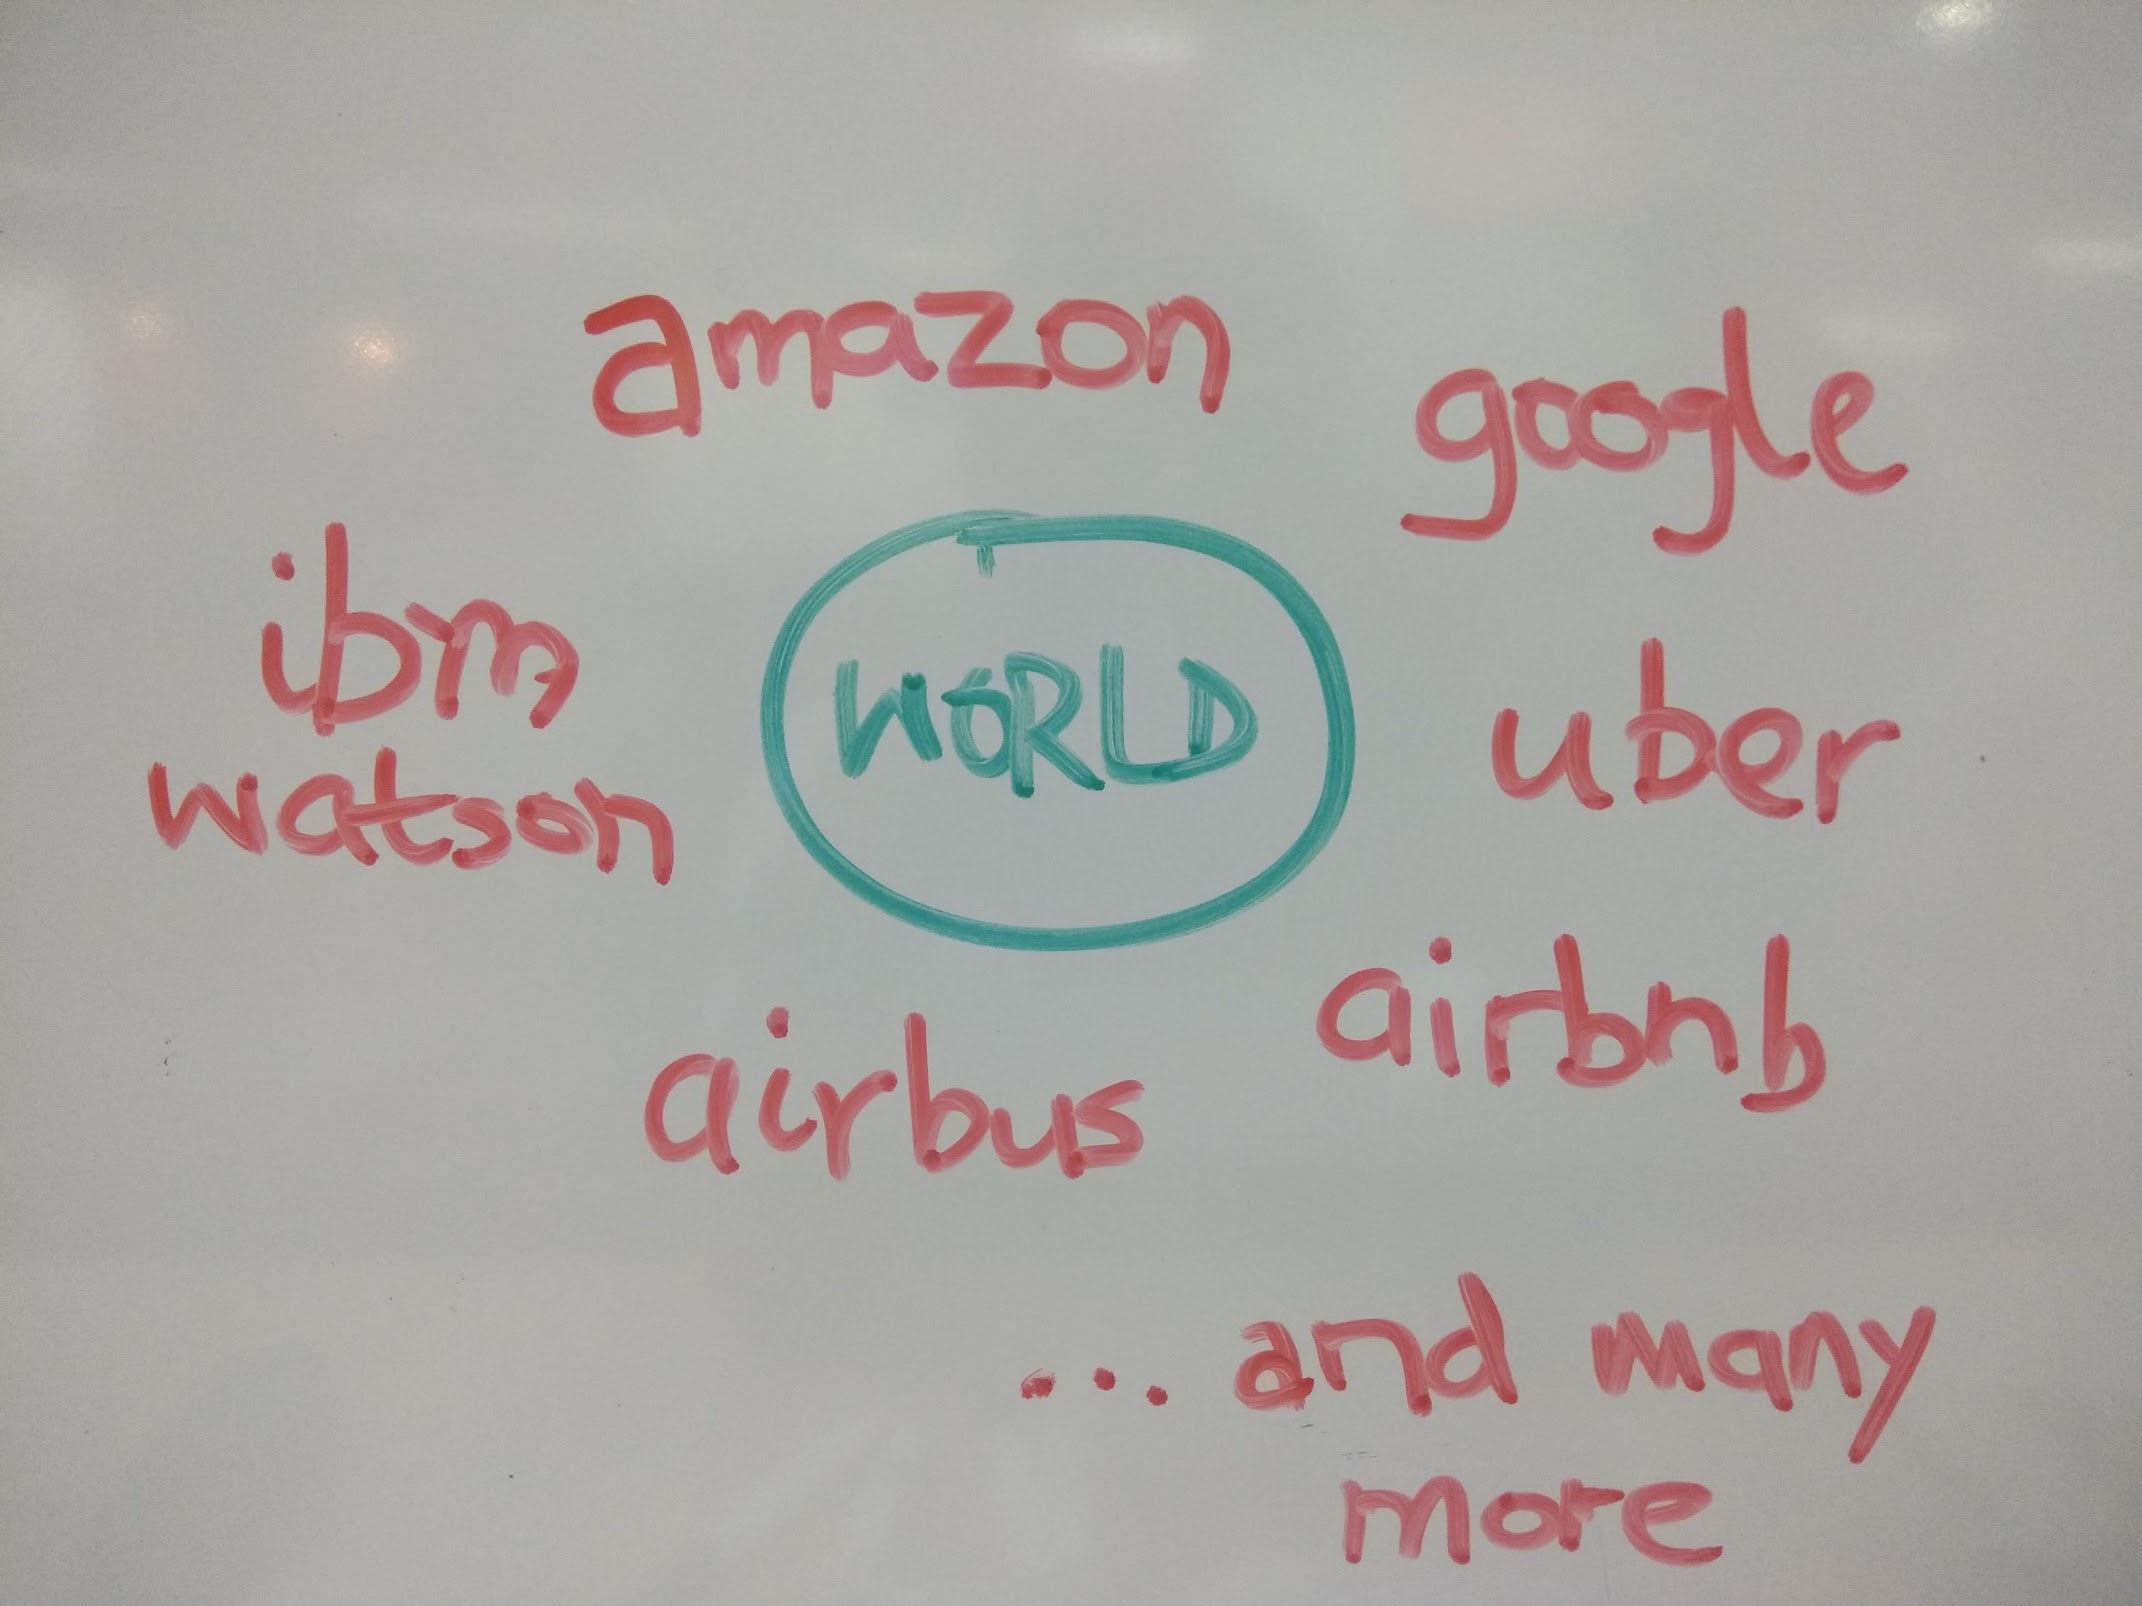 amazon
google
ibm
watson
WORLD
uber
airbnb
airbus
... and many
more